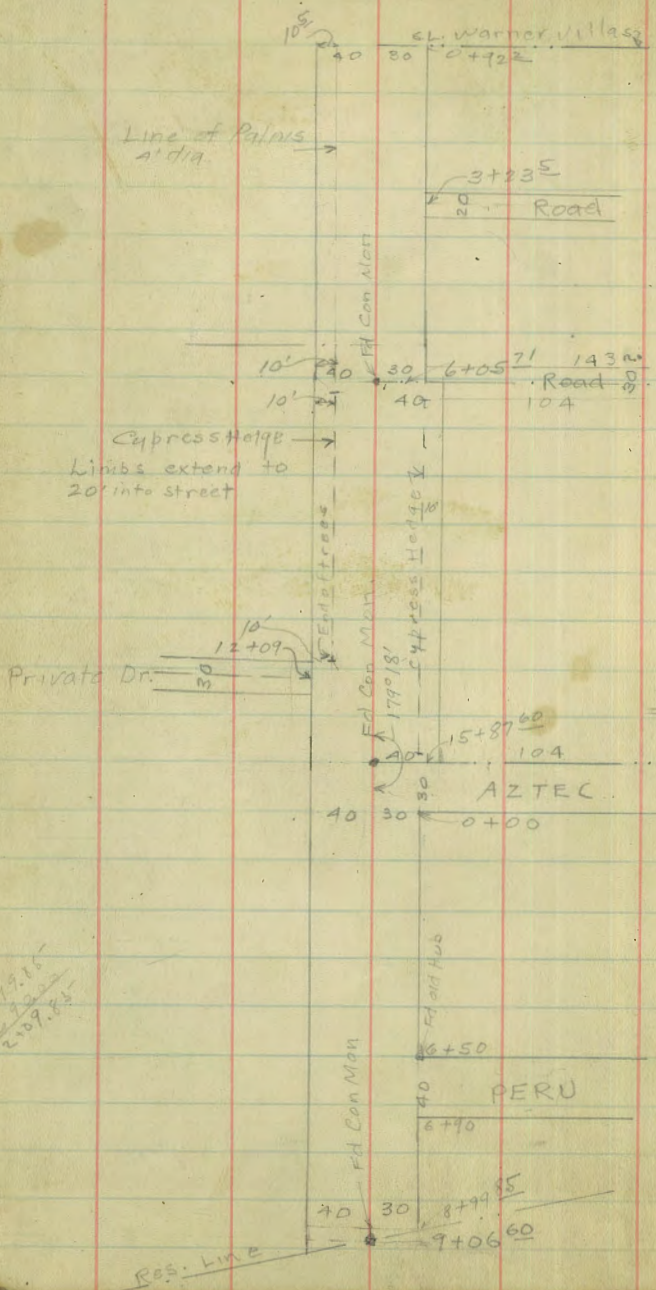 10⁵
CL. Warner Villas
40 30 0+92²
Line of Palms
4' dia
3+23⁵
20 Road
Fd Con Mon
10'
40 30 6+05⁷¹ 143²
Road 30
10' 40 104
Cypress Hedge
Limbs extend to
20' into street
End of trees
Cypress Hedge
10'
12+09
Private Dr.
30
Fd Con Mon
179°18'
15+87⁶⁰
40 104
30 AZTEC
40 30 0+00
Fd old Hub
6+50
40 PERU
6+90
Fd Con Mon
2+09.85
40 30 8+99⁸⁵
9+06⁶⁰
Res. Line